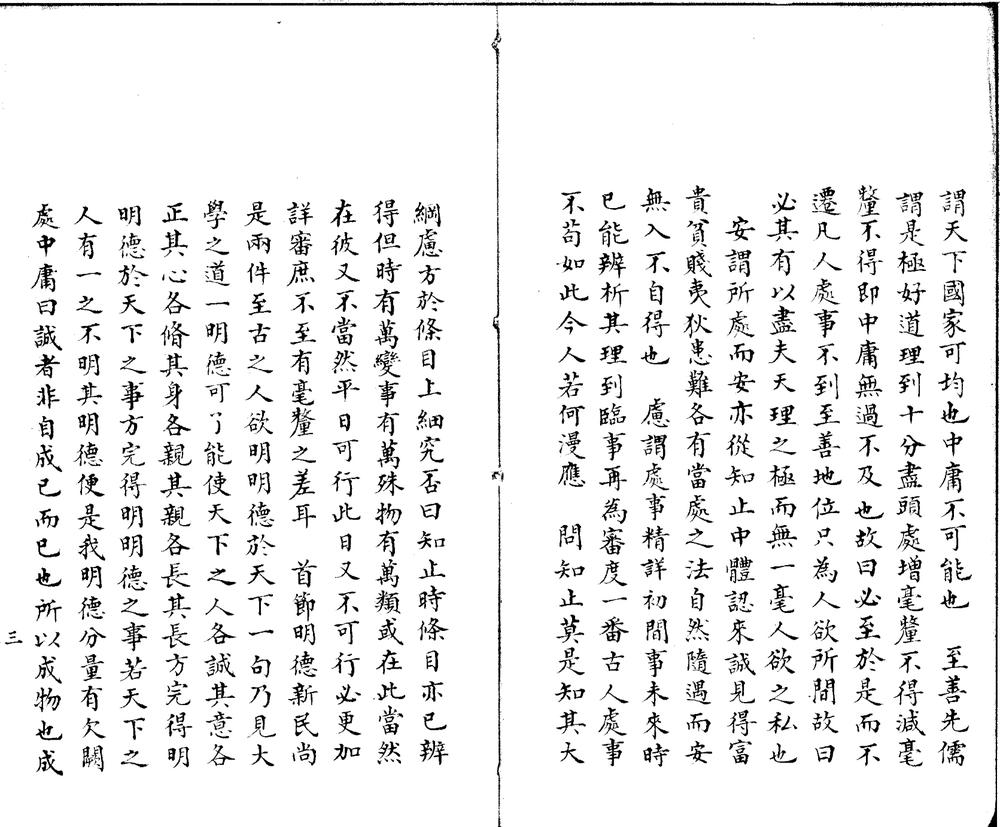 謂天下國家可均也中庸不可能也　至善先儒
謂是極好道理到十分盡頭處增毫釐不得減毫
釐不得即中庸無過不及也故曰必至於是而不
遷凡人處事不到至善地位只為人欲所間故曰
必其有以盡夫天理之極而無一毫人欲之私也
安謂所處而安亦從知止中體認來誠見得富
貴貧賤夷狄患難各有當處之法自然隨遇而安
無入不自得也　慮謂處事精詳初間事未來時
已能辨析其理到臨事再為審度一番古人處事
不苟如此今人若何漫應　問知止莫是知其大
綱慮方於條目上細究否曰知止時條目亦已辨
得但時有萬變事有萬殊物有萬類或在此當然
在彼又不當然平日可行此日又不可行必更加
詳審庶不至有毫釐之差耳　首節明德新民尚
是兩件至古之人欲明明德於天下一句乃見大
學之道一明德可了能使天下之人各誠其意各
正其心各脩其身各親其親各長其長方完得明
明德於天下之事方完得明明德之事若天下之
人有一之不明其明德便是我明德分量有欠闕
處中庸曰誠者非自成已而已也所以成物也成
三